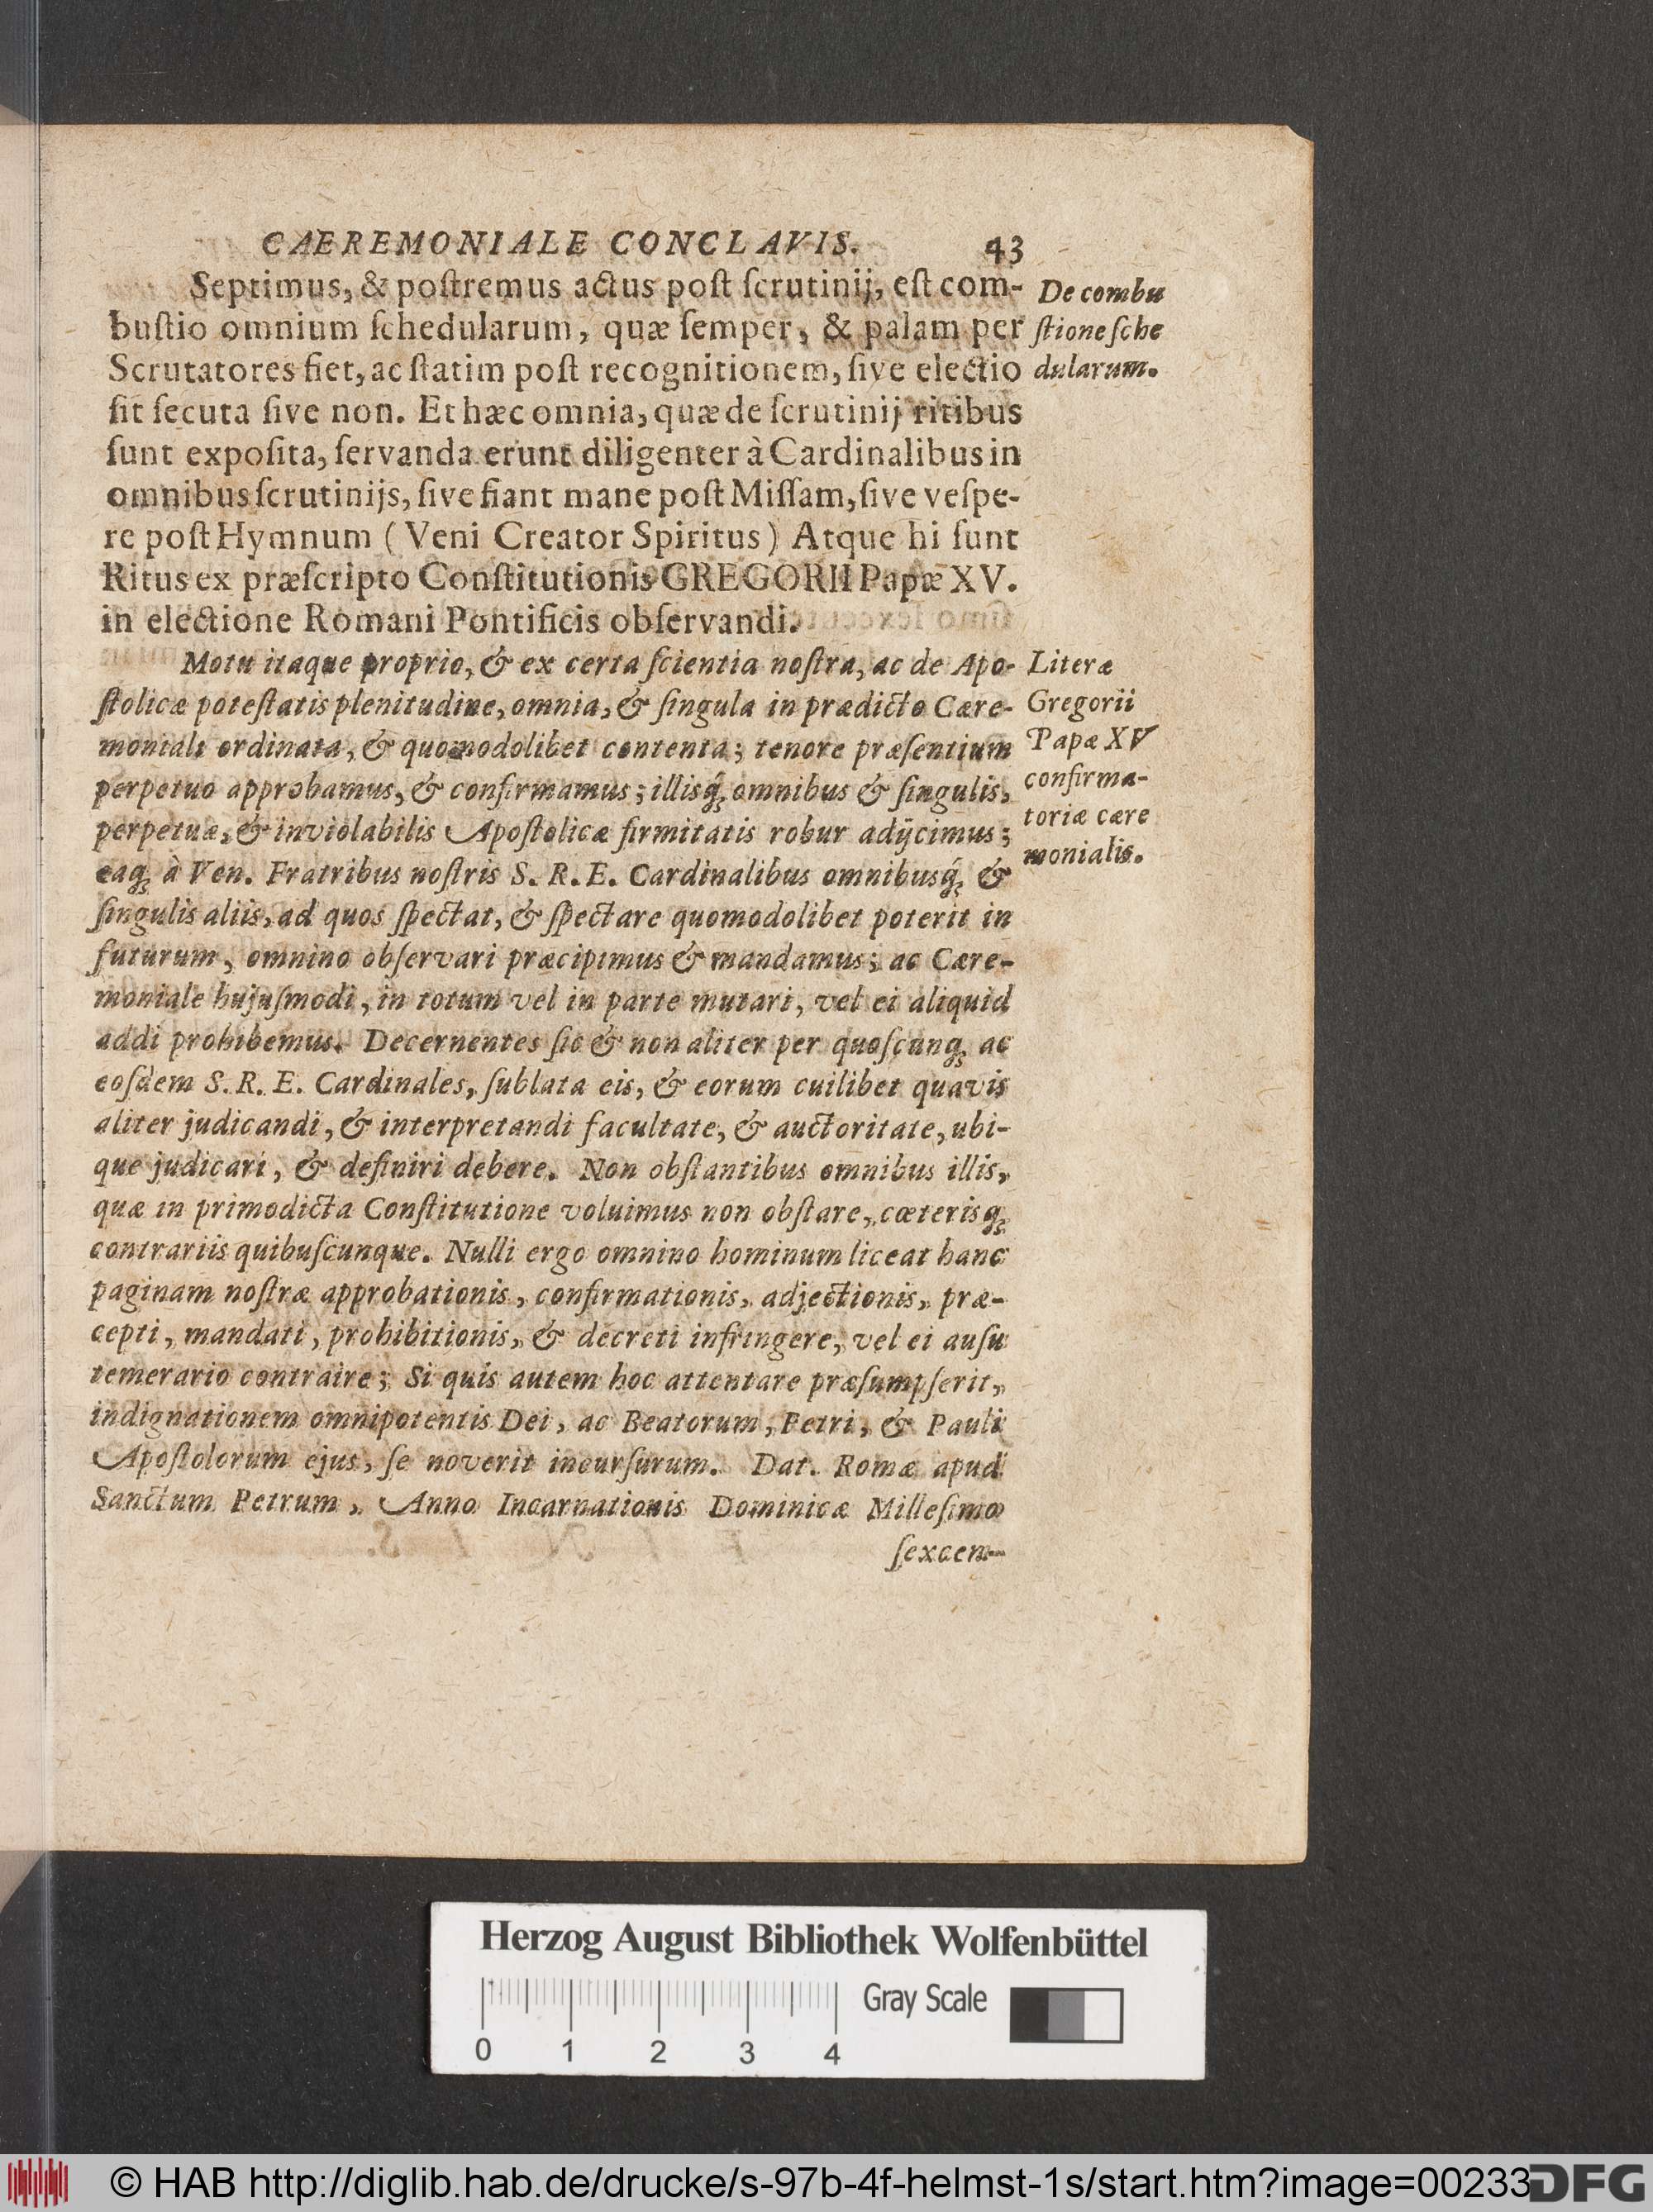 CAEREMONIALE CONCLAVIS. 43
Septimus, & poſtremus actus poſt ſcrutinij, eſt com-
buſtio omnium ſchedularum, quæ ſemper, & palam per
Scrutatores fiet, ac ſtatim poſt recognitionem, ſive electio
ſit ſecuta ſive non. Et hæc omnia, quæ de ſcrutinij ritibus
ſunt expoſita, ſervanda erunt diligenter à Cardinalibus in
omnibus ſcrutinijs, ſive fiant mane poſt Miſſam, ſive veſpe-
re poſt Hymnum ( Veni Creator Spiritus ) Atque hi ſunt
Ritus ex præſcripto Conſtitutionis GREGORII Papæ XV.
in electione Romani Pontificis obſervandi.
De combu
ſtione ſche
dularum.
Motu itaque proprio, & ex certa ſcientia noſtra, ac de Apo-
ſtolicæ poteſtatis plenitudine, omnia, & ſingula in prædicto Cære-
moniali ordinata, & quomodolibet contenta; tenore præſentium
perpetuo approbamus, & confirmamus; illisq́; omnibus & ſingulis,
perpetuæ, & inviolabilis Apoſtolicæ firmitatis robur adijcimus;
eaq; à Ven. Fratribus noſtris S. R. E. Cardinalibus omnibusq́; &
ſingulis aliis, ad quos ſpectat, & ſpectare quomodolibet poterit in
futurum, omnino obſervari præcipimus & mandamus; ac Cære-
moniale hujuſmodi, in totum vel in parte mutari, vel ei aliquid
addi prohibemus. Decernentes ſic & non aliter per quoſcunq; ac
eoſdem S. R. E. Cardinales, ſublata eis, & eorum cuilibet quavis
aliter judicandi, & interpretandi facultate, & auctoritate, ubi-
que judicari, & definiri debere. Non obſtantibus omnibus illis,
quæ in primodicta Conſtitutione voluimus non obſtare, cæterisq;
contrariis quibuſcunque. Nulli ergo omnino hominum liceat hanc
paginam noſtræ approbationis, confirmationis, adjectionis, præ-
cepti, mandati, prohibitionis, & decreti infringere, vel ei auſu
temerario contraire; Si quis autem hoc attentare præſumpſerit,
indignationem omnipotentis Dei, ac Beatorum, Petri, & Pauli
Apoſtolorum ejus, ſe noverit incurſurum. Dat. Romæ apud
Sanctum Petrum, Anno Incarnationis Dominicæ Milleſimo
ſexcen-
Literæ
Gregorii
Papæ XV
confirma-
toriæ cære
monialis.
Herzog August Bibliothek Wolfenbüttel
Gray Scale
0 1 2 3 4
© HAB http://diglib.hab.de/drucke/s-97b-4f-helmst-1s/start.htm?image=00233
DFG